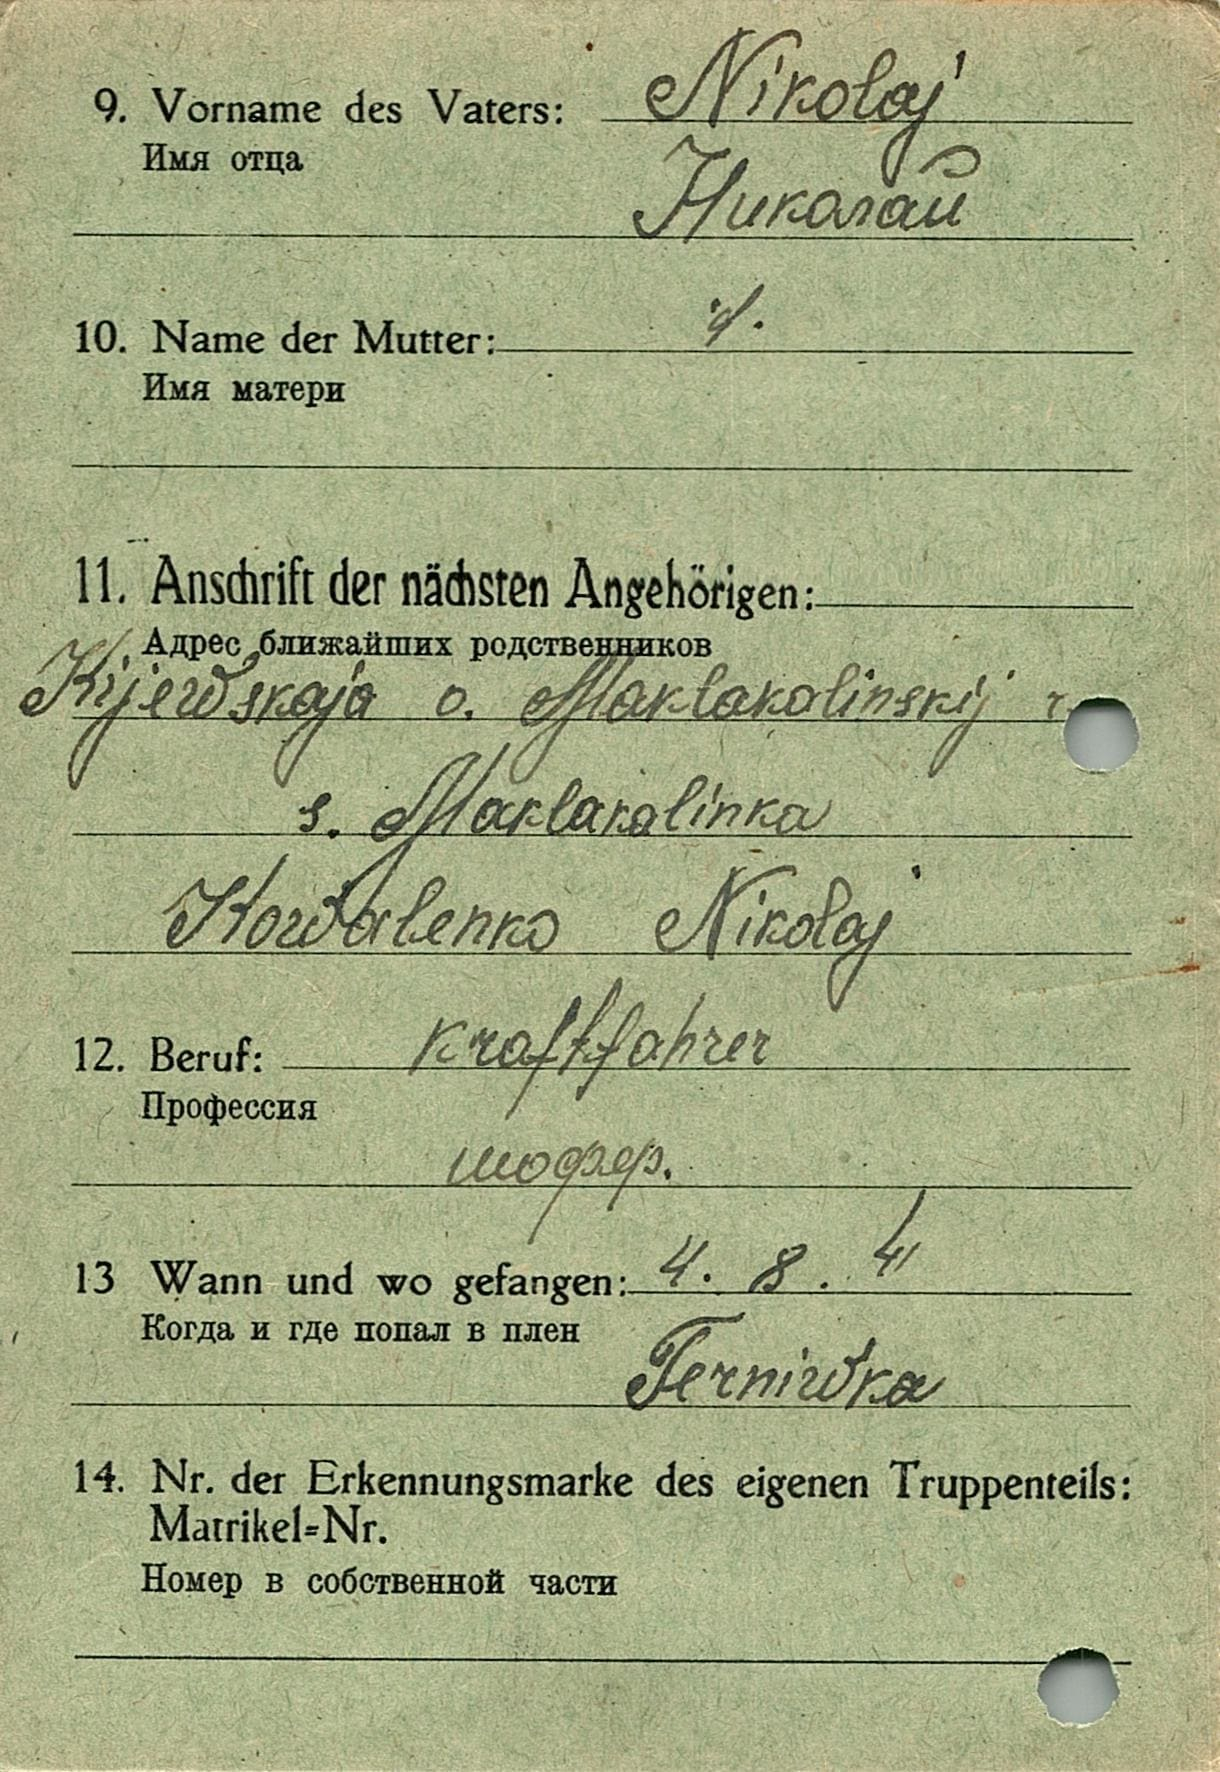 9. Vorname des Vaters: Nikolaj
Имя отца
Николай
10. Name der Mutter:
Имя матери
11. Anschrift der nächsten Angehörigen:
Адрес ближайших родственников
Kijewskaja o. Maklakolinskij r.
s. Maklakalinka
Kowalenko Nikolaj
12. Beruf: Kraftfahrer
Профессия
шофер.
13 Wann und wo gefangen: 4. 8. 41
Когда и где попал в плен
Terniwka
14. Nr. der Erkennungsmarke des eigenen Truppenteils:
Matrikel=Nr.
Номер в собственной части